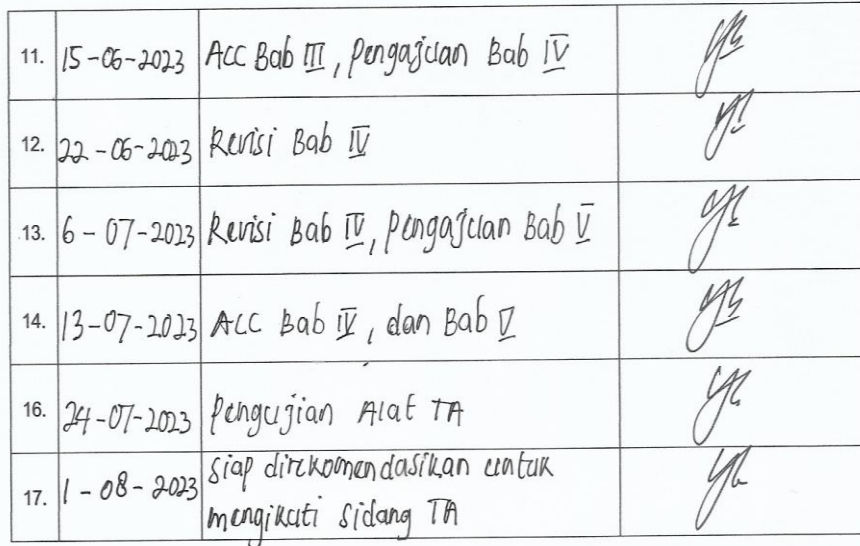 11. 15-06-2023 Acc Bab III, Pengajuan Bab IV
12. 22-06-2023 Revisi Bab IV
13. 6-07-2023 Revisi Bab IV, Pengajuan Bab V
14. 13-07-2023 Acc Bab IV, dan Bab V
16. 24-07-2023 Pengujian Alat TA
17. 1-08-2023 Siap direkomendasikan untuk
mengikuti Sidang TA